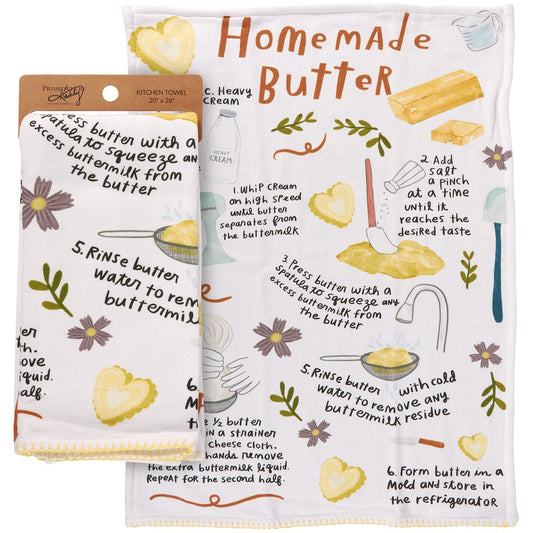 Primitives
Kathy
KITCHEN TOWEL
20" x 28"
Press butter with a
spatula to squeeze any
excess buttermilk from
the butter
5. Rinse butter
water to remo
buttermilk
6.
Mold
th
tore
th.
move
liquid.
alf.
Homemade
Butter
C. Heavy
Cream
HEAVY
CREAM
1. Whip cream
on high speed
until butter
separates from
the buttermilk
2. Add
salt
a pinch
at a time
until it
reaches the
desired taste
3. Press butter with a
spatula to squeeze any
excess buttermilk from
the butter
5. Rinse butter with cold
water to remove any
buttermilk residue
e ½ butter
in a strainer
cheese cloth.
hands remove
the extra buttermilk liquid.
Repeat for the second half.
6. Form butter in a
Mold and store in
the refrigerator